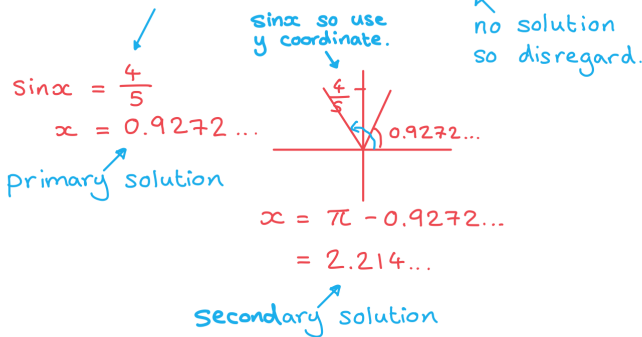 sinx so use
y coordinate.
no solution
so disregard.
sinx = 4/5
x = 0.9272...
primary solution
4/5
0.9272...
x = π - 0.9272...
= 2.214...
secondary solution